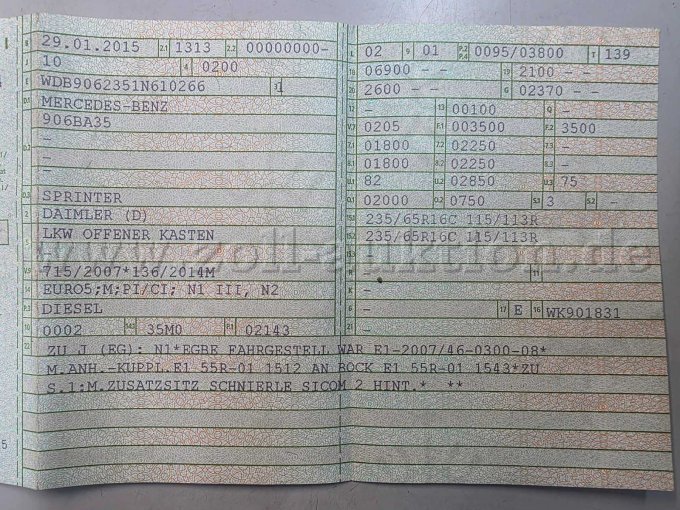 B 29.01.2015 2.1 1313 2.2 00000000-
J 10 4 0200
E WDB9062351N610266 3 1
D.1 MERCEDES-BENZ
906BA35
D.2 –
–
–
D.3 SPRINTER
2 DAIMLER (D)
5 LKW OFFENER KASTEN
–
V.9 715/2007*136/2014M
14 EURO5;M;PI/CI; N1 III, N2
P.3 DIESEL
10 0002 14.1 35M0 P.1 02143
L 02 9 01 P.2 P.4 0095/03800 T 139
18 06900 – – 19 2100 – –
20 2600 – – G 02370 – –
12 – 13 00100 Q –
V.7 0205 F.1 003500 F.2 3500
7.1 01800 7.2 02250 7.3 –
8.1 01800 8.2 02250 8.3 –
U.1 82 U.2 02850 U.3 75
O.1 02000 O.2 0750 S.1 3 S.2 –
15.1 235/65R16C 115/113R
15.2 235/65R16C 115/113R
15.3 –
R – 11 –
K –
6 – 17 E 16 WK901831
21 –
22 ZU J (EG): N1*EGBE FAHRGESTELL WAR E1-2007/46-0300-08*
M.ANH.-KUPPL.E1 55R-01 1512 AN BOCK E1 55R-01 1543*ZU
S.1:M.ZUSATZSITZ SCHNIERLE SICOM 2 HINT.* **
www.zoll-auktion.de